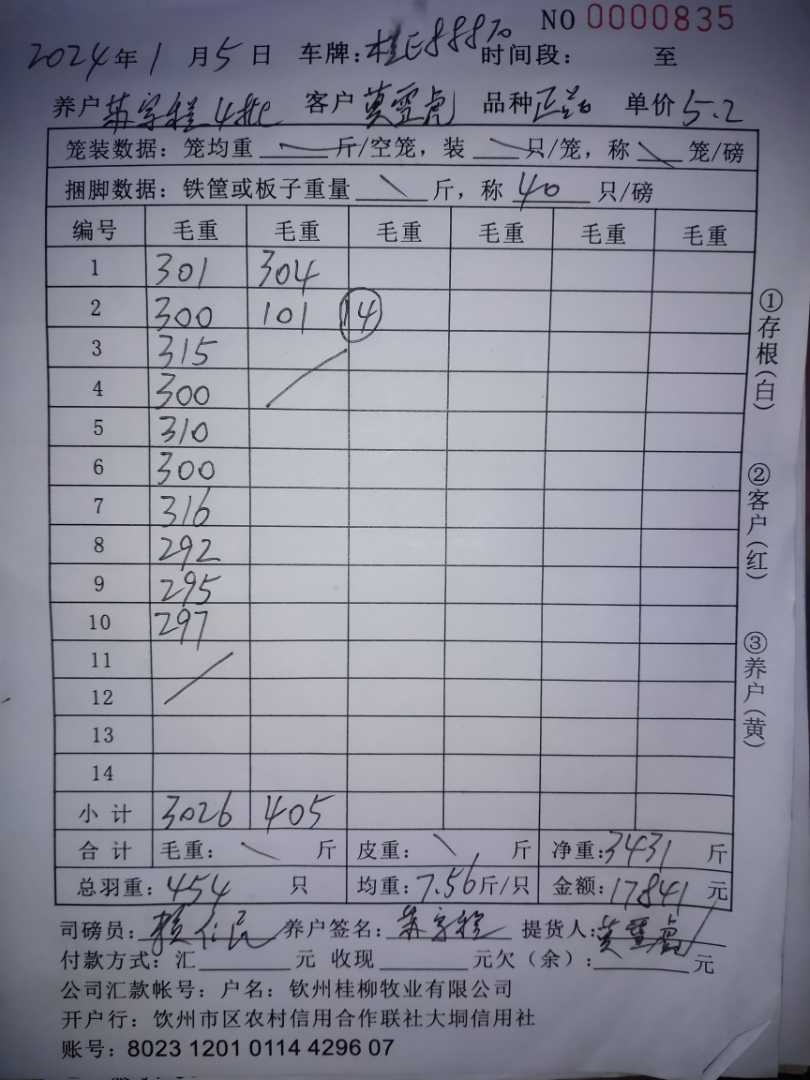 NO 0000835
2024年1月5日 车牌:桂E88870 时间段: 至
养户 4批 客户 莫灵虎 品种 正 单价 5.2
笼装数据: 笼均重 斤/空笼，装 只/笼，称 笼/磅
捆脚数据: 铁筐或板子重量 斤，称 40 只/磅
编号 毛重 毛重 毛重 毛重 毛重 毛重
1 301 304
2 300 101 14
3 315
4 300
5 310
6 300
7 316
8 292
9 295
10 297
11
12
13
14
小计 3026 405
合计 毛重: 斤 皮重: 斤 净重:3431 斤
总羽重:454 只 均重:7.56斤/只 金额:17841元
司磅员: 养户签名: 提货人:莫灵虎
付款方式: 汇 元 收现 元欠（余）: 元
公司汇款帐号: 户名: 钦州桂柳牧业有限公司
开户行: 饮州市区农村信用合作联社大垌信用社
账号: 8023 1201 0114 4296 07
①存根(白)
②客户(红)
③养户(黄)